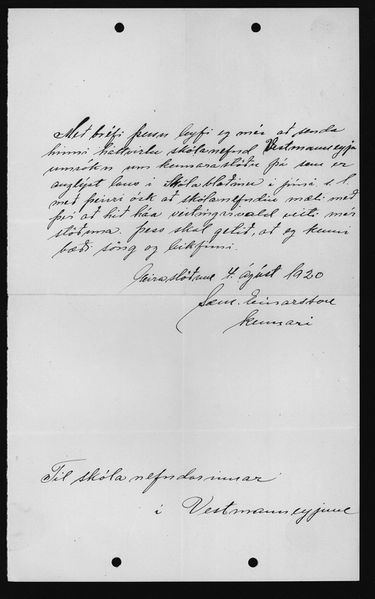 Með bréfi þessu leyfi eg mér að senda
hinni háttvirtu skólanefnd Vestmanneyja
umsókn um kennarastöðu þá sem er
auglýst laus i Skólablaðinu i júní s. l.
með þeirri ósk að skólanefndin mæli með
því að hið háa veitingarvald veiti mér
stöðuna. þess skal getið, að eg kenni
bæði söng og leikfimi.
4. ágúst 1920
Sæm. Einarsson
kennari
Til skólanefndarinnar
i Vestmanneyjum